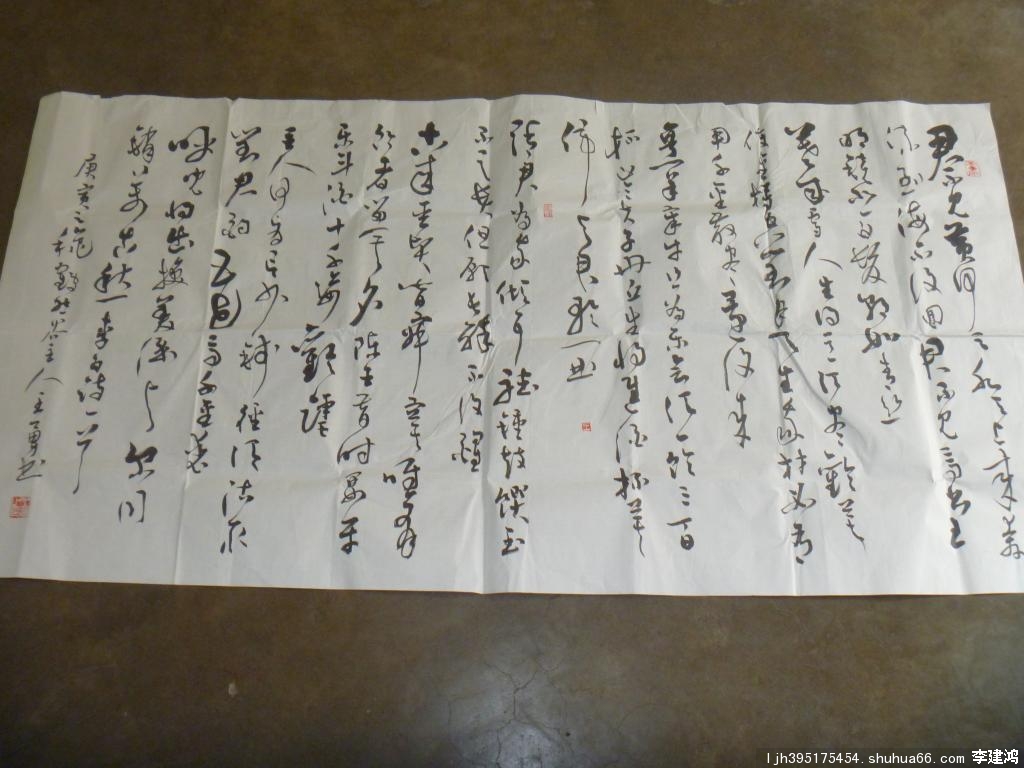 君不见黄河之水天上来奔
流到海不复回君不见高堂
明镜悲白发朝如青丝
暮成雪人生得意须尽欢莫
使金樽空对月天生我材必有
用千金散尽还复来
烹羊宰牛且为乐会须饮三百
杯岑夫子丹丘生将进酒杯莫
停与君歌一曲
请君为我倾耳听钟鼓馔玉
不足贵但愿长醉不复醒
古来圣贤皆寂寞唯有
饮者留其名陈王昔时宴平
乐斗酒十千恣欢谑
主人何为言少钱径须沽取
对君酌五花马千金裘
呼儿将出换美酒与尔同
销万古愁李白诗一首
庚寅之
谷主人王勇书
ljh395175454.shuhua66.com 李建鸿